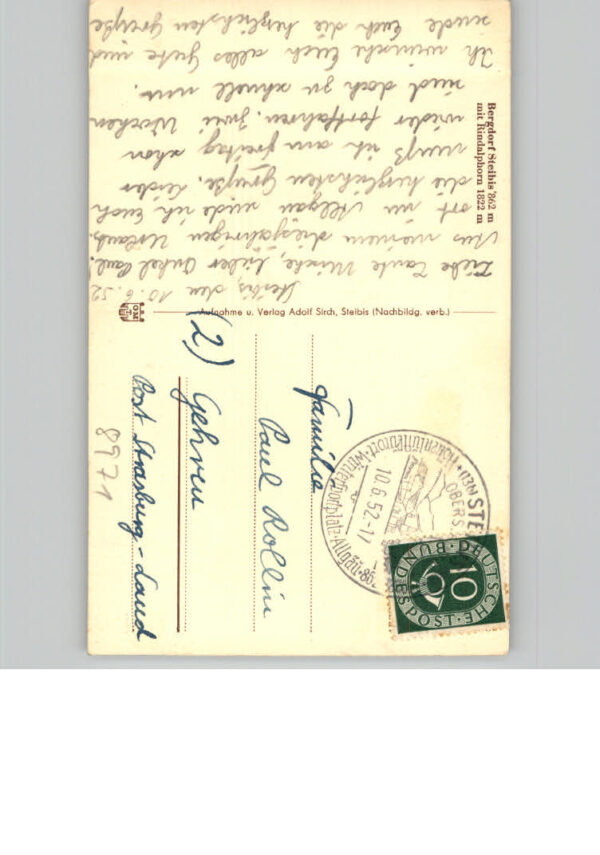 Bergdorf Steibis 862 m
mit Rindalphorn 1822 m
Steibis, den 10.6.52
Liebe Tante Mieke, lieber Onkel Paul!
Aus meinem diesjährigen Urlaubs-
ort im Allgäu sende ich Euch
die herzlichsten Grüße. Leider
muß ich am Freitag schon
wieder fortfahren. Zwei Wochen
sind doch zu schnell um.
Ich wünsche Euch alles Gute und
sende Euch die herzlichsten Grüße
Aufnahme u. Verlag Adolf Sirch, Steibis (Nachbildg. verb.)
Familie
Paul Rollin
(2) Gehren
Post Strasburg-Land
8971
10.6.52-17
Höhenluftkurort · Wintersportplatz · Allgäu · 86
DEUTSCHE BUNDESPOST
10